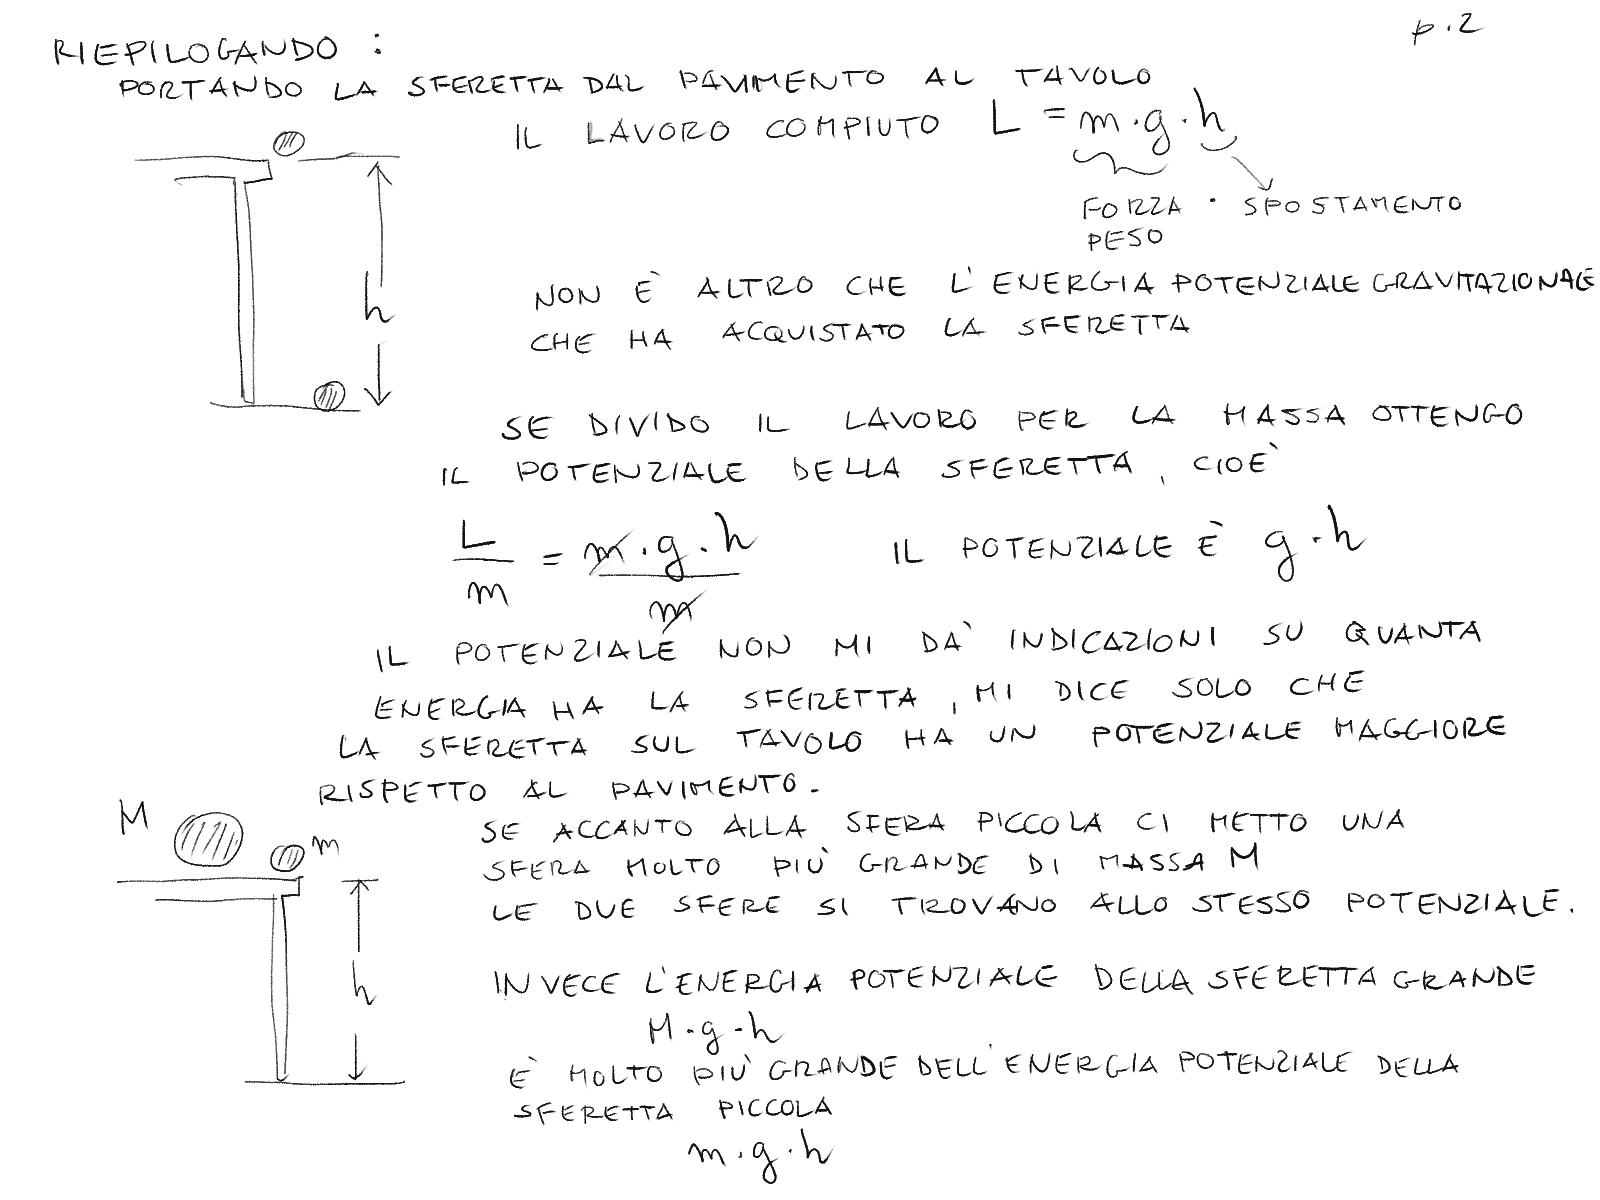 p.2
RIEPILOGANDO :
PORTANDO LA SFERETTA DAL PAVIMENTO AL TAVOLO
IL LAVORO COMPIUTO L = m·g·h
FORZA · SPOSTAMENTO
PESO
h
NON È ALTRO CHE L'ENERGIA POTENZIALE GRAVITAZIONALE
CHE HA ACQUISTATO LA SFERETTA
SE DIVIDO IL LAVORO PER LA MASSA OTTENGO
IL POTENZIALE DELLA SFERETTA, CIOÈ
L/m = m·g·h/m IL POTENZIALE È g·h
IL POTENZIALE NON MI DÀ INDICAZIONI SU QUANTA
ENERGIA HA LA SFERETTA, MI DICE SOLO CHE
LA SFERETTA SUL TAVOLO HA UN POTENZIALE MAGGIORE
RISPETTO AL PAVIMENTO.
M m
SE ACCANTO ALLA SFERA PICCOLA CI METTO UNA
SFERA MOLTO PIÙ GRANDE DI MASSA M
LE DUE SFERE SI TROVANO ALLO STESSO POTENZIALE.
h
INVECE L'ENERGIA POTENZIALE DELLA SFERETTA GRANDE
M·g·h
È MOLTO PIÙ GRANDE DELL'ENERGIA POTENZIALE DELLA
SFERETTA PICCOLA
m·g·h